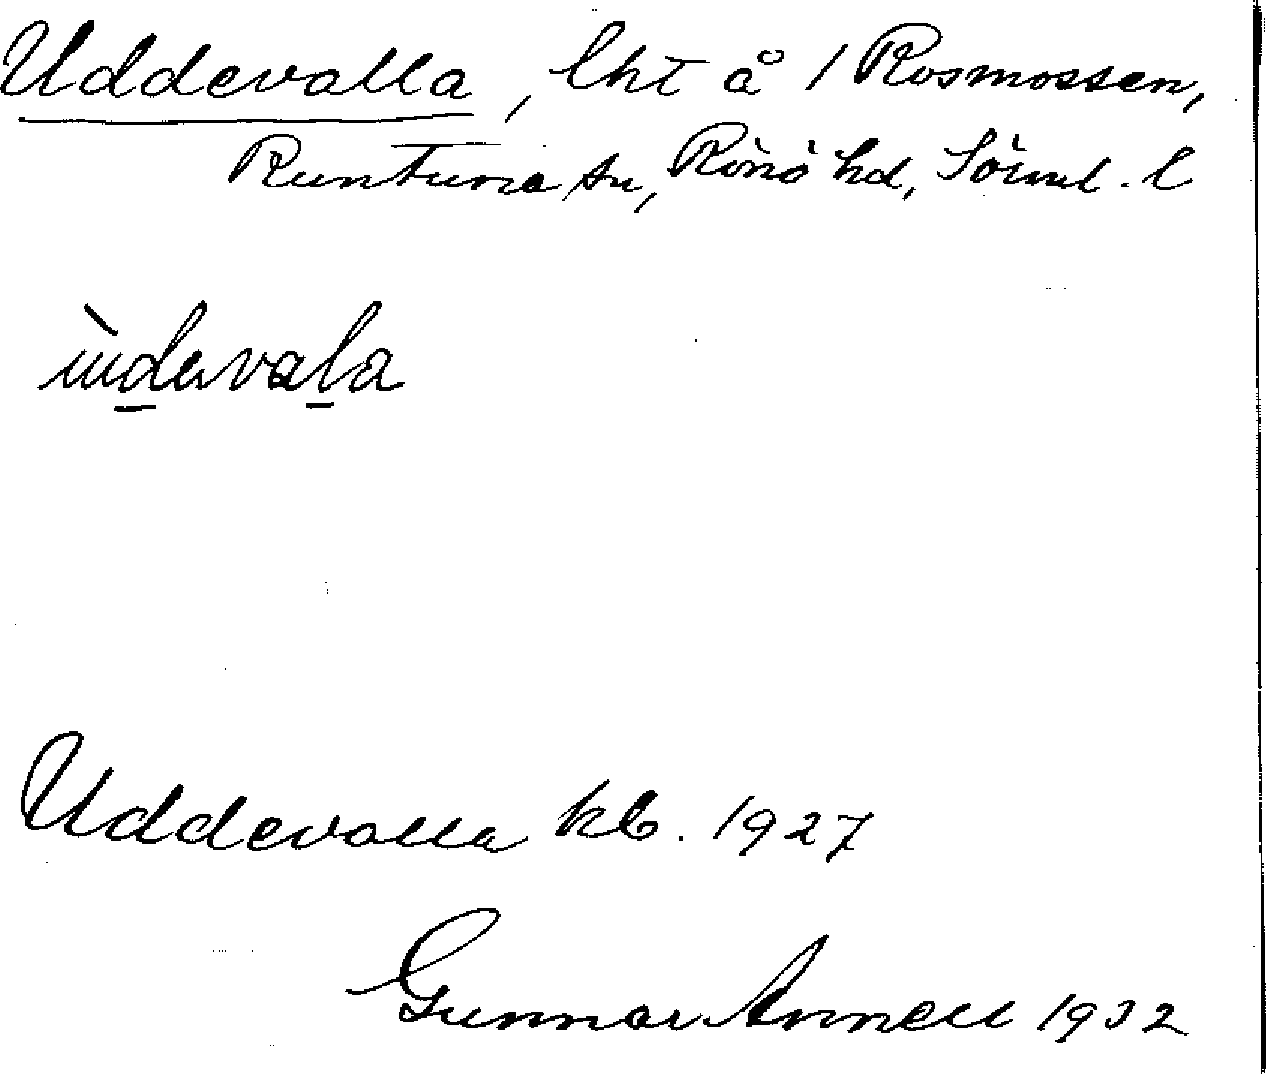 Uddevalla, lht å 1 Rosmossen,
Runtuna sn, Rönö hd, Söml. l
ùdevala
Uddevalla kb. 1927
Gunnar Annell 1932